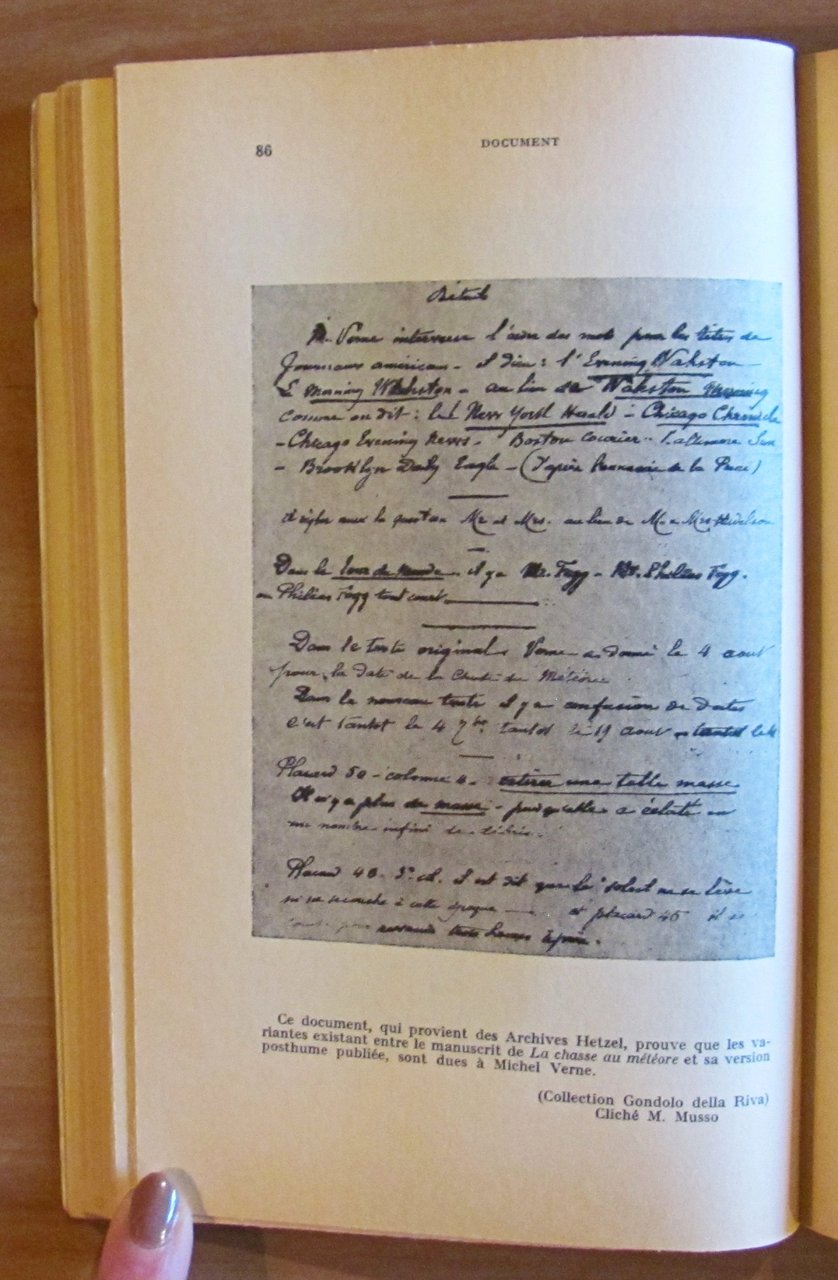 86
DOCUMENT
Détails
M. Verne intervertit l'ordre des mots pour les titres de
Journaux américains - il dira : l'Evening Whaston
L Morning Whaston - au lieu de Whaston Morning
comme on dit : Le New York Herald - Chicago Chronicle
- Chicago Evening News - Boston Courier - Baltimore Sun
- Brooklyn Daily Eagle - (D'après l'annuaire de la Presse)
la question Mr et Mrs. au lieu de M. et Mrs Hudelson
Dans le Tour du Monde il y a Mr. Fogg - Mr. Philéas Fogg.
ou Philéas Fogg tout court
Dans le texte original Verne a donné le 4 aout
pour la date de la Chute du Météore
Dans le nouveau texte il y a confusion de dates
c'est tantot le 4 7bre tantot le 19 aout
Placard 50 - colonne 4 - : attirer une telle masse
Il n'y a plus de masse - puisqu'elle a éclaté en
un nombre infini de débris.
Placard 40 - 3e col. Il est dit que le soleil ne se lève
ni ne se couche à cette époque - et placard 45 il
trois heures après.
Ce document, qui provient des Archives Hetzel, prouve que les va-
riantes existant entre le manuscrit de La chasse au météore et sa version
posthume publiée, sont dues à Michel Verne.
(Collection Gondolo della Riva)
Cliché M. Musso